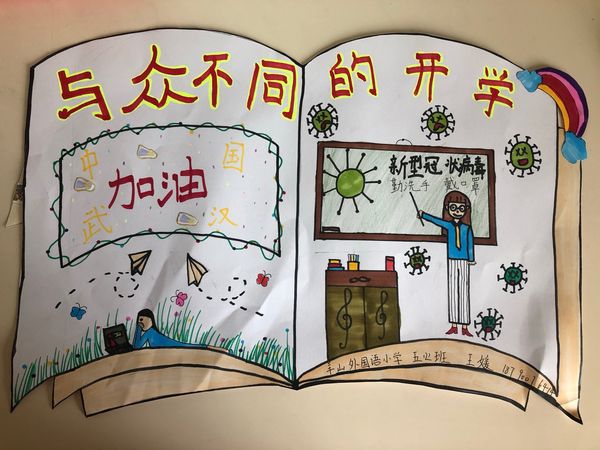 与众不同的开学
中国
加油
武汉
新型冠状病毒
勤洗手 戴口罩
外国语小学